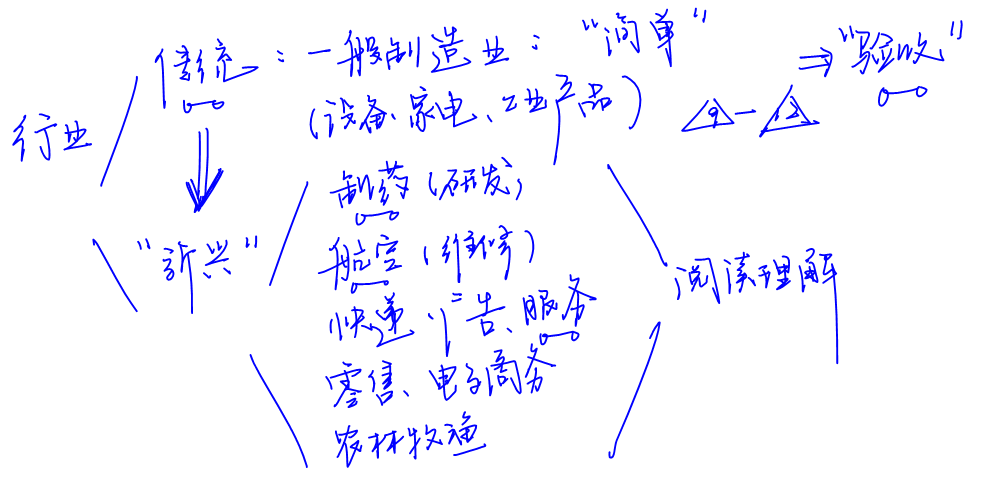 行业
传统：一般制造业："简单"
(设备、家电、工业产品)
⇒"验收"
"新兴"
制药(研发)
航空(维修)
快递、广告、服务
零售、电子商务
农林牧渔
阅读理解